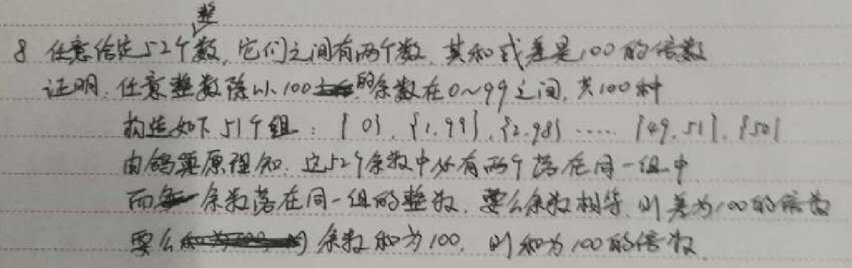 8 任意给定52个整数,它们之间有两个数,其和或差是100的倍数
证明:任意整数除以100的余数在0~99之间,共100种
构造如下51个组:{0},{1.99},{2.98}…… {49.51},{50}
由鸽巢原理知,这52个余数中必有两个落在同一组中
而余数落在同一组的整数,要么余数相等,则差为100的倍数
要么余数和为100,则和为100的倍数.